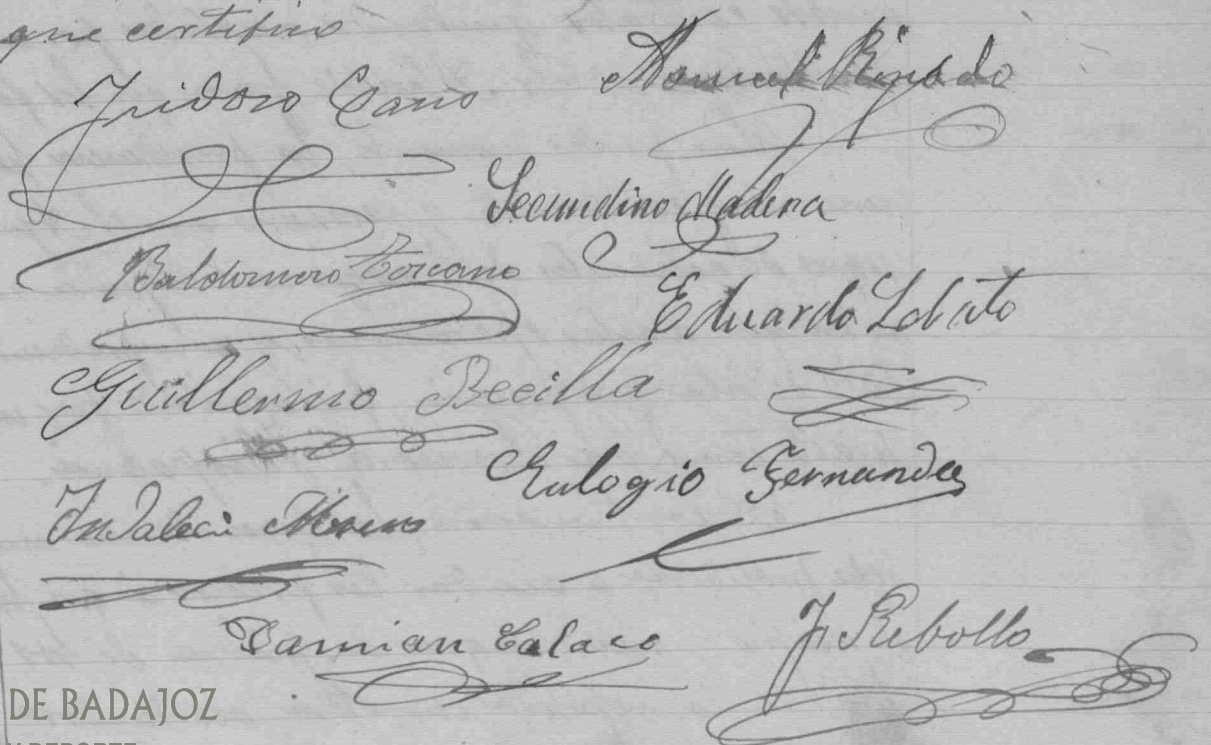 que certifico
Isidoro Cano
Manuel
Secundino Madera
Baldomero Toscano
Eduardo Lobato
Guillermo Becilla
Eulogio Fernandez
Indalecio Moreno
Damian
J. Rebollo
DE BADAJOZ